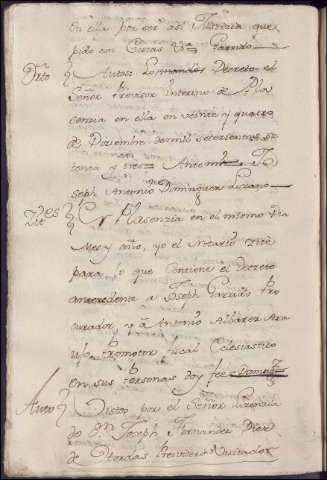 en ella por ser así Justicia que
pido con Costas Vª Garrido
Drto Autos: Lo mando Decreto el
Señor Provisor Interino de Pla
cencia en ella en veinte y quatro
de Diziembre de mil setecientos se
tenta y tres Ante mi Jo
seph Antonio Dominguez Lozano
En Plasencia en el mismo dia
Mes y año, yo el Notario zité
para lo que contiene el Decreto
antecedente a Joseph Garrido Pro
curador, y à Antonio Albarez Ara
ujo Promotor Fiscal Eclesiastico
en sus Personas doy fee
Auto Vistos por el Señor Lizencia
do Dn Joseph Fernandez Diez
de Provisor Visitador